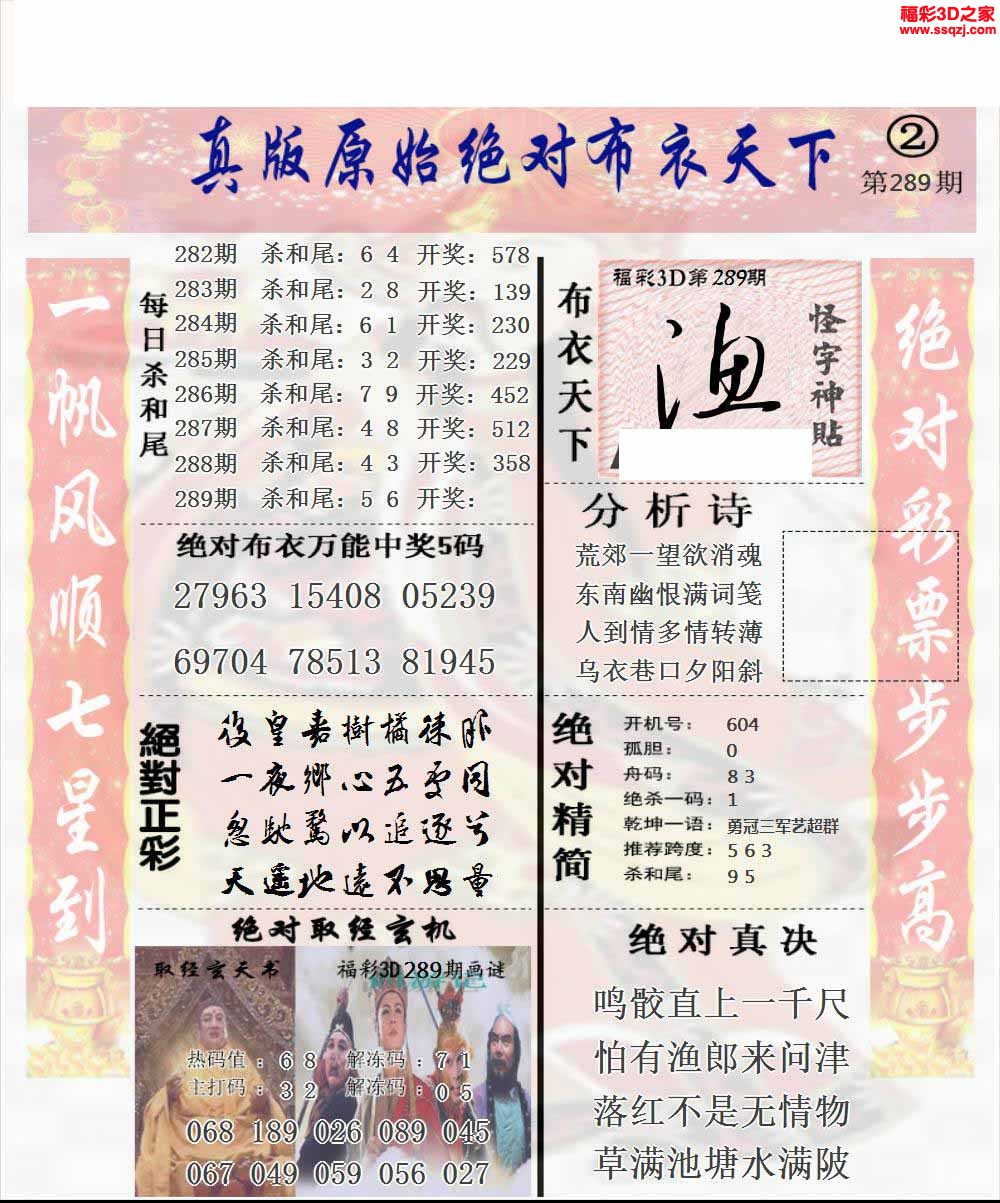 福彩3D之家
www.ssqzj.com
真版原始绝对布衣天下
②
第289期
一帆风顺七星到
每日杀和尾
282期 杀和尾：6 4 开奖：578
283期 杀和尾：2 8 开奖：139
284期 杀和尾：6 1 开奖：230
285期 杀和尾：3 2 开奖：229
286期 杀和尾：7 9 开奖：452
287期 杀和尾：4 8 开奖：512
288期 杀和尾：4 3 开奖：358
289期 杀和尾：5 6 开奖：
绝对布衣万能中奖5码
27963 15408 05239
69704 78513 81945
絕對正彩
後皇嘉樹橘徕服
一夜鄉心五更同
忽馳騖以追逐兮
天遥地遠不思量
绝对取经玄机
取经玄天书
福彩3D289期画谜
热码值：6 8 解冻码：7 1
主打码：3 2 解冻码：0 5
068 189 026 089 045
067 049 059 056 027
布衣天下
福彩3D第289期
渔
怪字神貼
分析诗
荒郊一望欲消魂
东南幽恨满词笺
人到情多情转薄
乌衣巷口夕阳斜
绝对精简
开机号： 604
孤胆： 0
舟码： 8 3
绝杀一码：1
乾坤一语：勇冠三军艺超群
推荐跨度：5 6 3
杀和尾： 9 5
绝对真决
鸣骹直上一千尺
怕有渔郎来问津
落红不是无情物
草满池塘水满陂
绝对彩票步步高